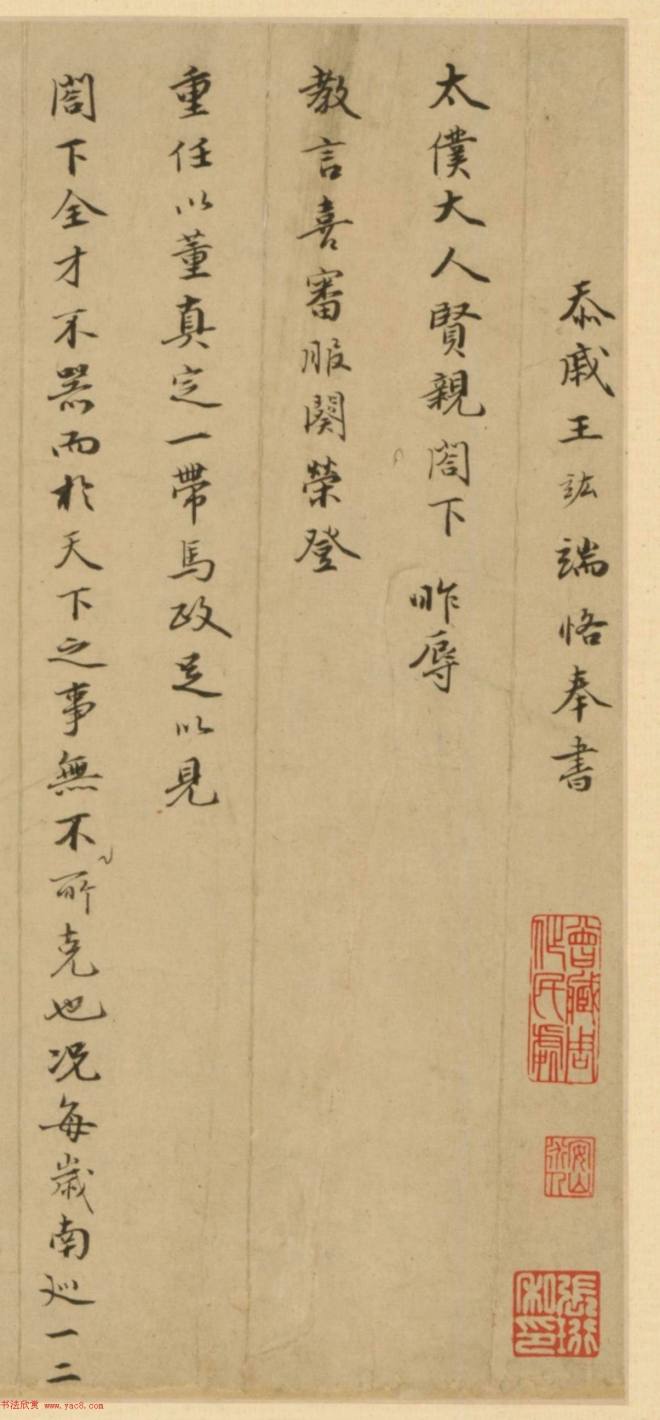 忝戚王竑端恪奉書
太僕大人賢親閤下昨辱
教言喜審服闋榮登
重任以董真定一帶馬政足以見
閤下全才不器而於天下之事無不所克也况每歲南巡一二
曾藏周作民處
張珩私印
书法欣赏 www.yac8.com